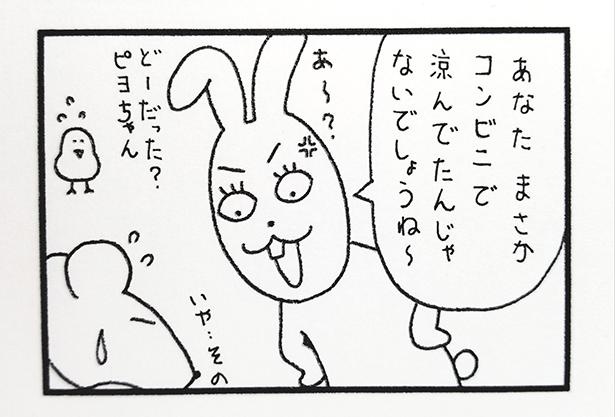 あなた まさか
コンビニで
涼んでたんじゃ
ないでしょうね〜
あ〜?
どーだった?
ピヨちゃん
いや…その